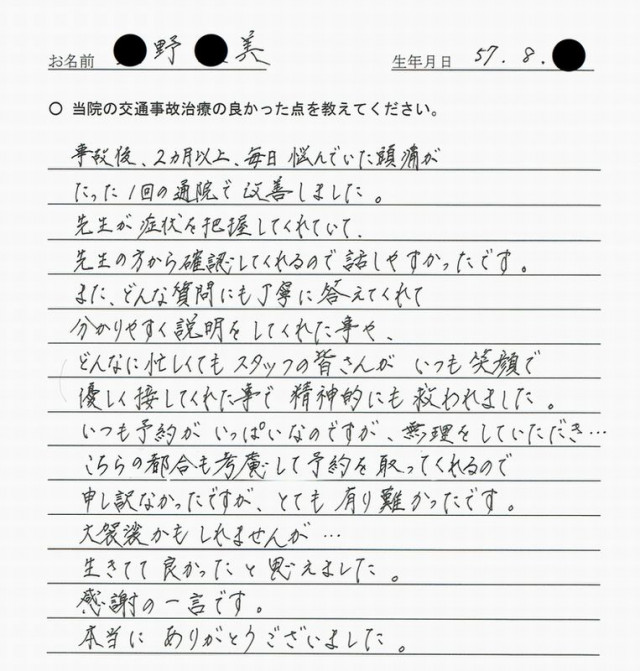 お名前 野 美 生年月日 57. 8.
○ 当院の交通事故治療の良かった点を教えてください。
事故後、2ヵ月以上、毎日 悩んでいた頭痛が
たった1回の通院で 改善しました。
先生が 症状を把握してくれていて、
先生の方から確認してくれるので 話しやすかったです。
また、どんな質問にも丁寧に答えてくれて
分かりやすく説明をしてくれた事や、
どんなに忙しくても スタッフの皆さんが いつも 笑顔で
優しく接してくれた事で 精神的にも 救われました。
いつも予約が いっぱいなのですが、無理をしていただき…
こちらの都合も考慮して予約を取ってくれるので
申し訳なかったですが、とても 有り難かったです。
大袈裟かもしれませんが…
生きてて 良かったと思えました。
感謝の一言です。
本当に ありがとうございました。